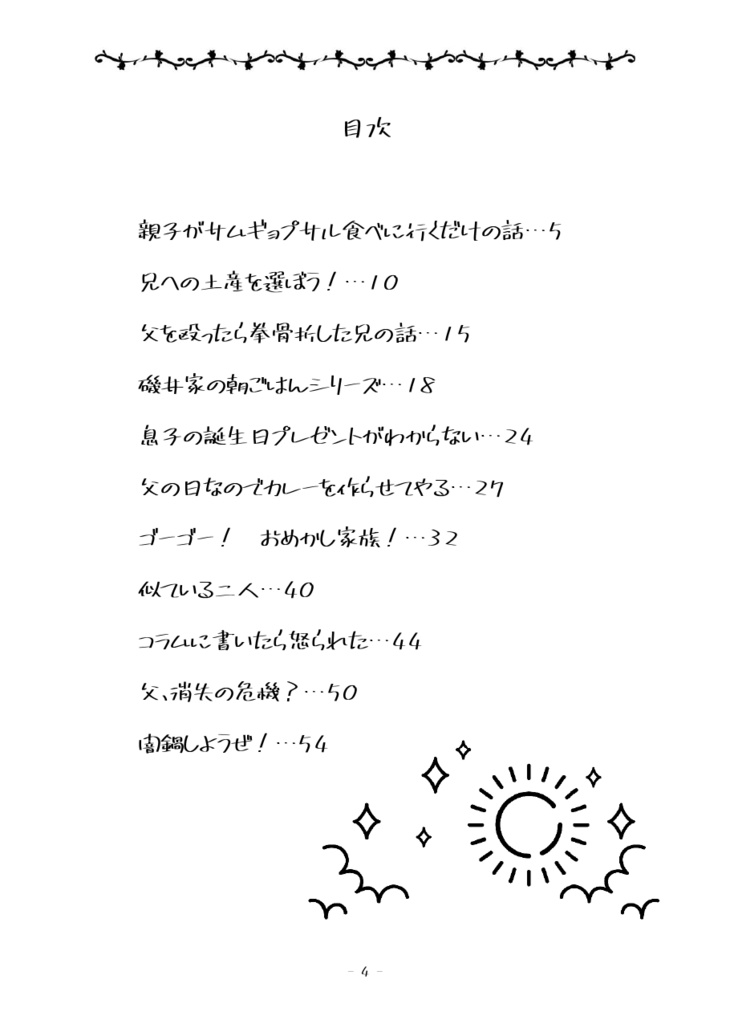 目次
親子がサムギョプサル食べに行くだけの話…5
兄への土産を選ぼう！…10
父を殴ったら拳骨折した兄の話…15
磯井家の朝ごはんシリーズ…18
息子の誕生日プレゼントがわからない…24
父の日なのでカレーを作らせてやる…27
ゴーゴー！　おめかし家族！…32
似ている二人…40
コラムに書いたら怒られた…44
父、消失の危機？…50
闇鍋しようぜ！…54
- 4 -